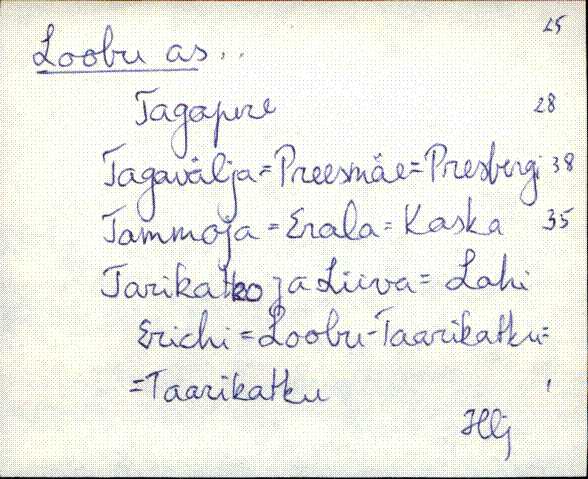 25
Loobu as..
Tagapere 28
Tagavälja = Preesmäe = Presbergi 38
Tammoja = Erala = Kaska 35
Tarikatko ja Liiva = Lahi
Erichi = Loobu-Taarikatku =
= Taarikatku
Hlj